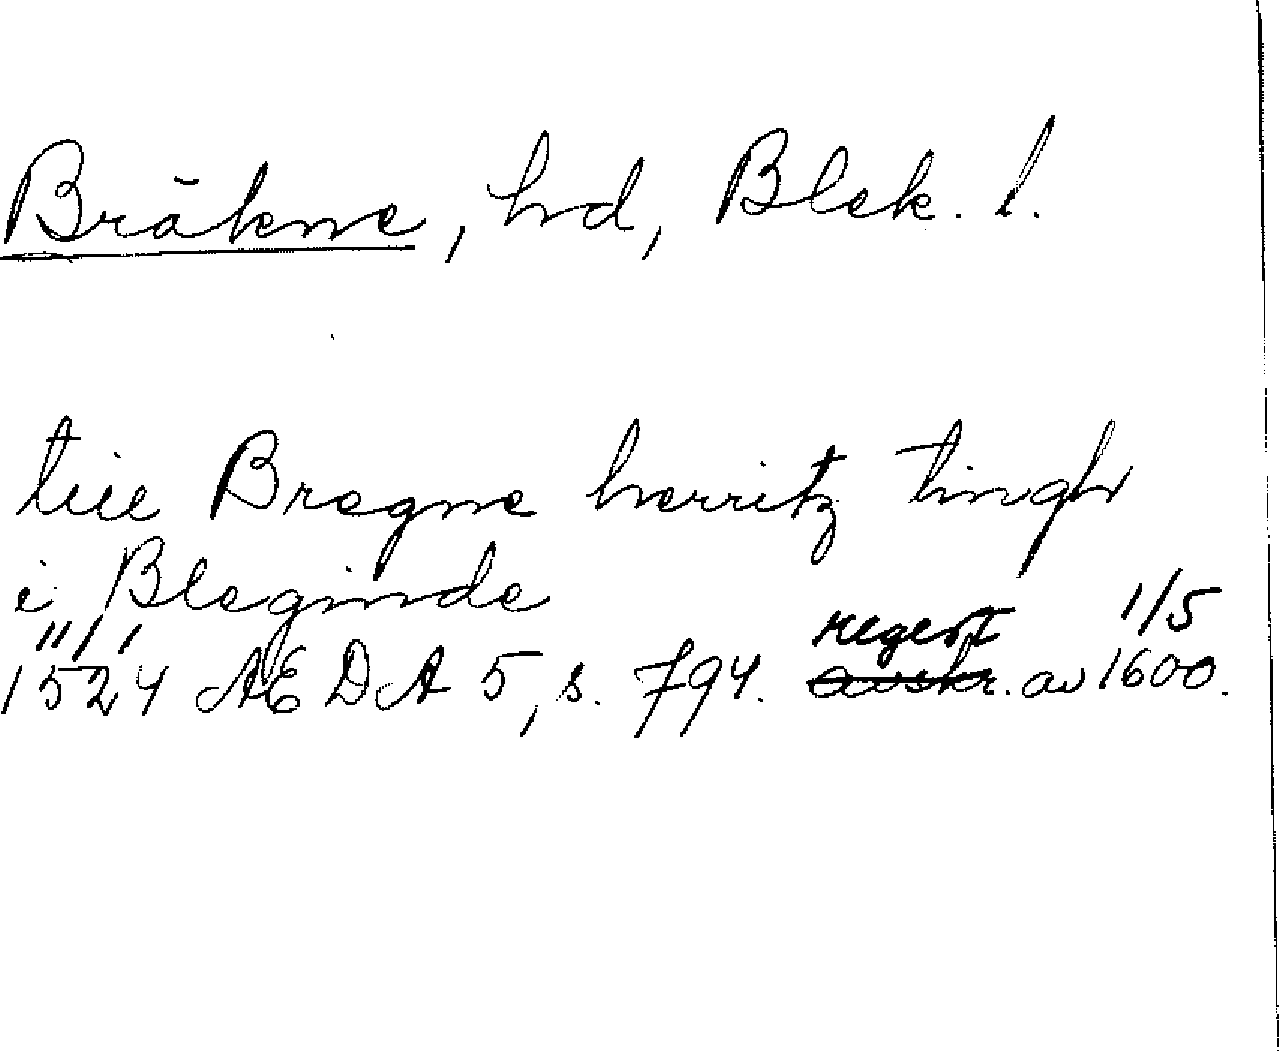 Bräkne, hd, Blek. l.
till Bregne herritz tingh
i Bleginde
11/1 regest 1/5
1524 ÆDA 5, s. 794. avskr. av 1600.